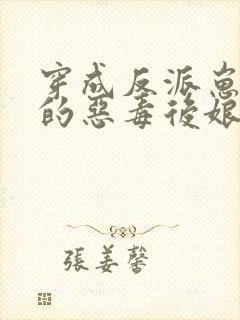 穿成反派崽
的惡毒後娘
張姜馨